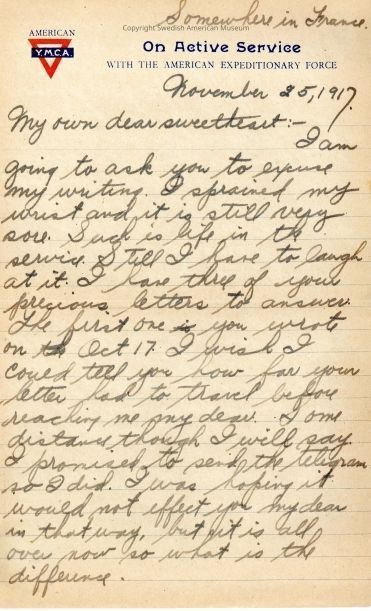 Somewhere in France.
Copyright Swedish American Museum
AMERICAN
Y.M.C.A.
On Active Service
WITH THE AMERICAN EXPEDITIONARY FORCE
November 25, 1917.
My own dear sweetheart:-
I am
going to ask you to excuse
my writing. I sprained my
wrist and it is still very
sore. Such is life in the
service. Still I have to laugh
at it. I have three of your
precious letters to answer.
The first one is you wrote
on th Oct 17. I wish I
could tell you how far your
letter had to travel before
reaching me my dear. Some
distance though I will say.
I promised to send the telegram
so I did. I was hoping it
would not effect you my dear
in that way, but it is all
over now so what is the
difference.